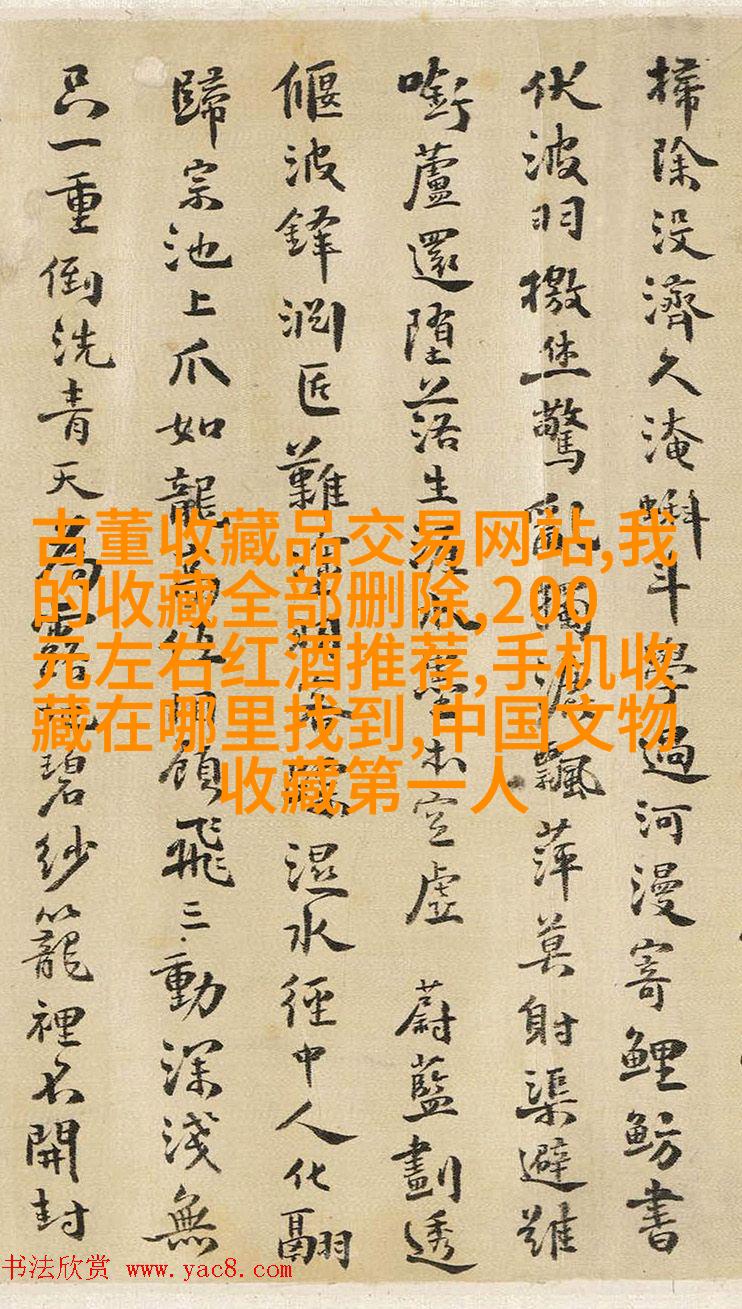 掃除没濟久淹蝌斗學過河漫寄鯉魴書
伏波羽檄驚亂獨浪飄萍莫射渠避雖
銜蘆還墮落生空虛 蔚藍劃透
偃波鋒匠難濕水經中人化翮
歸宗池上爪如龍飛三動深淺無
只一重倒洗青天為露碧紗籠裡不開封
古董收藏品交易网站,我
的收藏全部删除,200
元左右红酒推荐,手机收
藏在哪里找到,中国文物
收藏第一人
书法欣赏 www.yac8.com